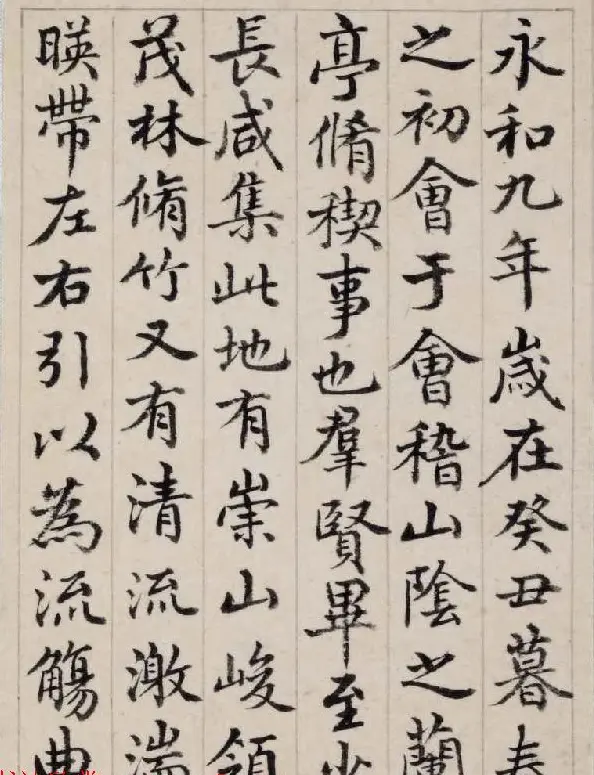 永和九年歲在癸丑暮春
之初會于會稽山陰之蘭
亭脩稧事也羣賢畢至少
長咸集此地有崇山峻領
茂林脩竹又有清流激湍
暎帶左右引以為流觴曲